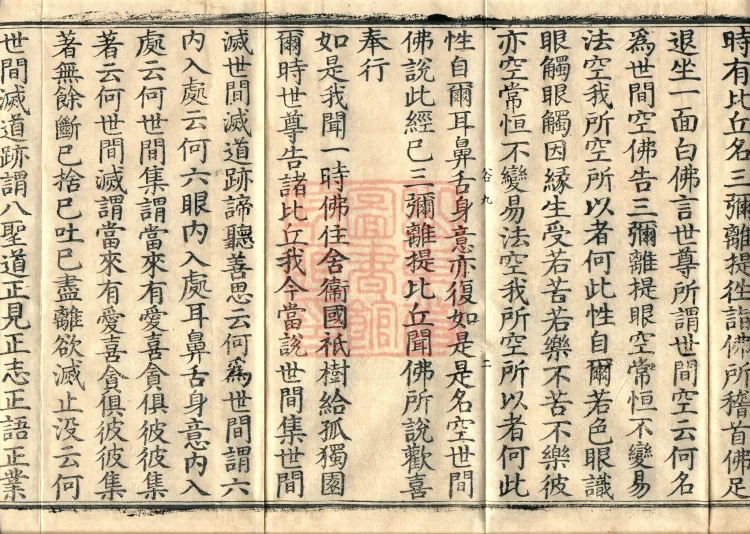 時有比丘名三彌離提徃詣佛所稽首佛足
退坐一面白佛言世尊所謂世間空云何名
為世間空佛告三彌離提眼空常恒不變易
法空我所空所以者何此性自爾若色眼識
眼觸眼觸因緣生受若苦若樂不苦不樂彼
亦空常恒不變易法空我所空所以者何此
谷九 二
性自爾耳鼻舌身意亦復如是是名空世間
佛說此經已三彌離提比丘聞佛所說歡喜
奉行
如是我聞一時佛住舍衞國祇樹給孤獨園
爾時世尊告諸比丘我今當說世間集世間
滅世間滅道跡諦聽善思云何為世間謂六
內入處云何六眼內入處耳鼻舌身意內入
處云何世間集謂當來有愛喜貪俱彼彼集
著云何世間滅謂當來有愛喜貪俱彼彼集
著無餘斷已捨已吐已盡離欲滅止没云何
世間滅道跡謂八聖道正見正志正語正業